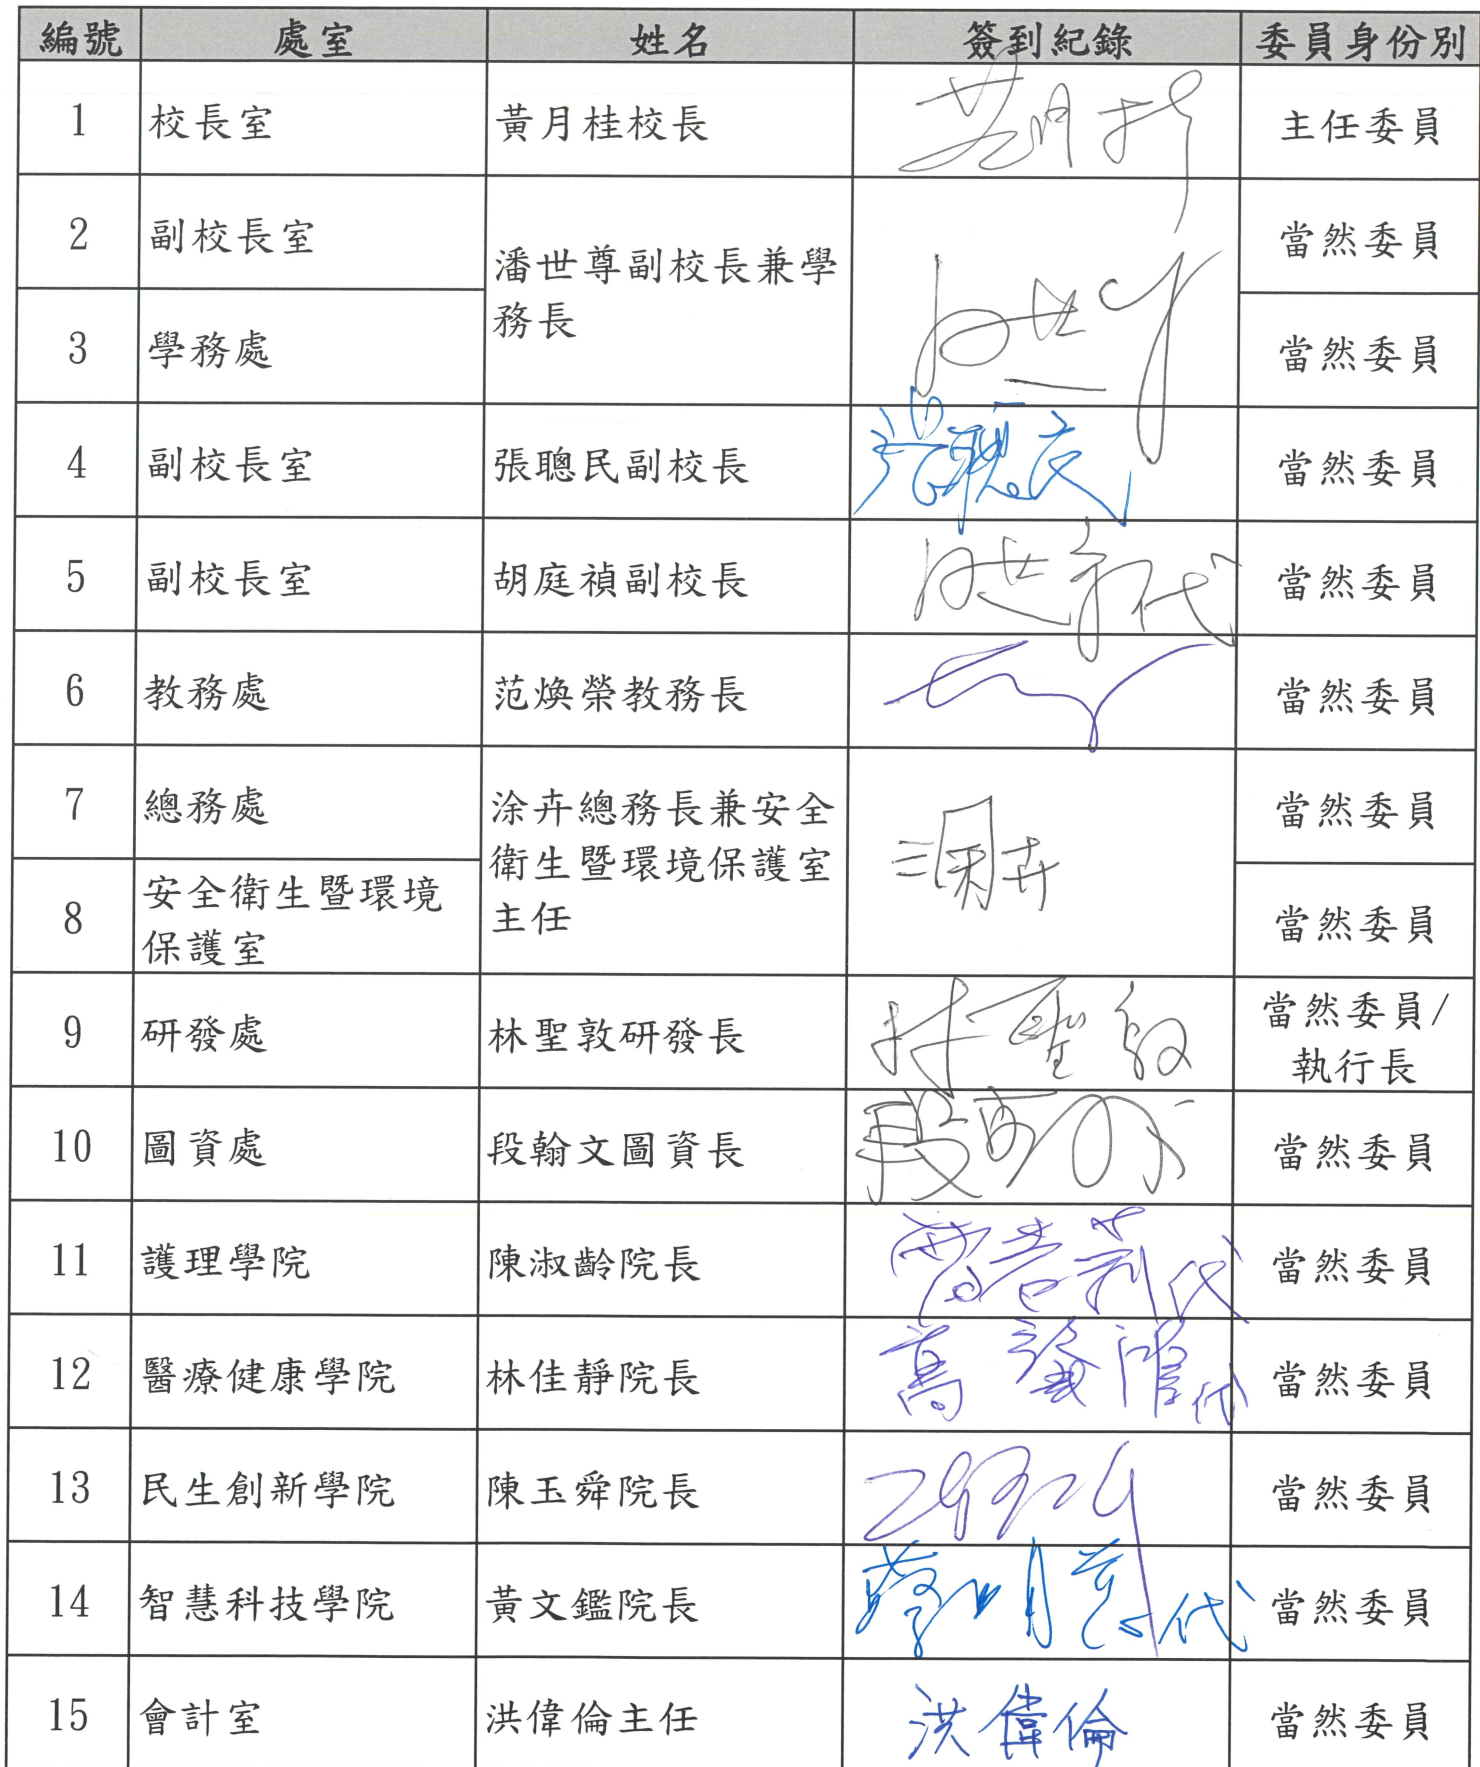 編號 處室 姓名 簽到紀錄 委員身份別
1 校長室 黃月桂校長 主任委員
2 副校長室 潘世尊副校長兼學 當然委員
務長
3 學務處 當然委員
4 副校長室 張聰民副校長 張聰民 當然委員
5 副校長室 胡庭禎副校長 代 當然委員
6 教務處 范煥榮教務長 當然委員
7 總務處 涂卉總務長兼安全 當然委員
衛生暨環境保護室
主任
8 安全衛生暨環境 當然委員
保護室
9 研發處 林聖敦研發長 林聖敦 當然委員/
執行長
10 圖資處 段翰文圖資長 當然委員
11 護理學院 陳淑齡院長 代 當然委員
12 醫療健康學院 林佳靜院長 代 當然委員
13 民生創新學院 陳玉舜院長 當然委員
14 智慧科技學院 黃文鑑院長 代 當然委員
15 會計室 洪偉倫主任 洪偉倫 當然委員